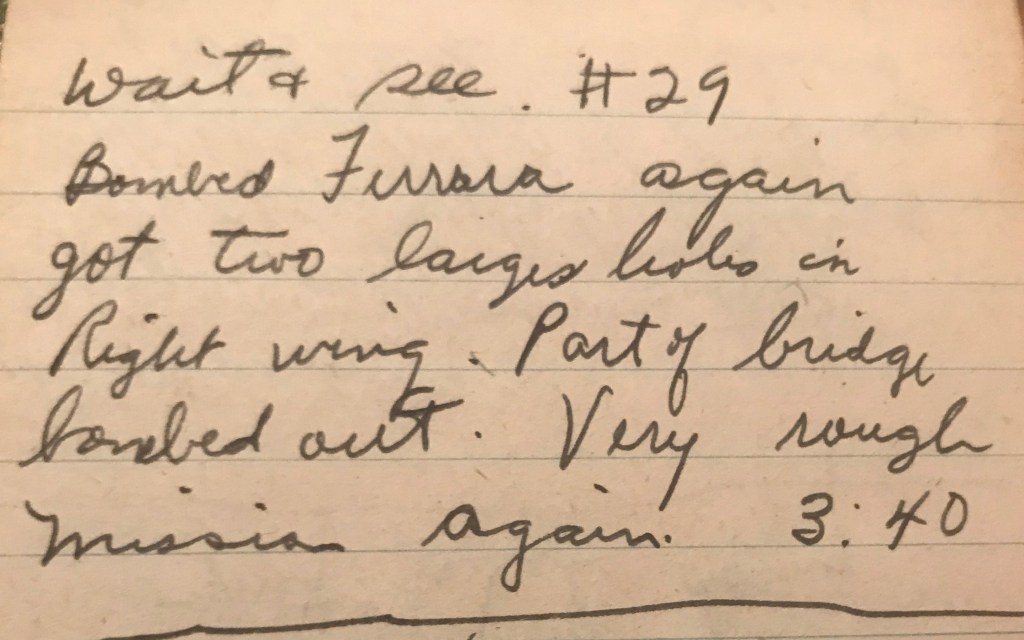 Wait & see. #29
Bombed Ferrara again
got two larges holes in
Right wing. Part of bridge
bombed out. Very rough
mission again. 3:40